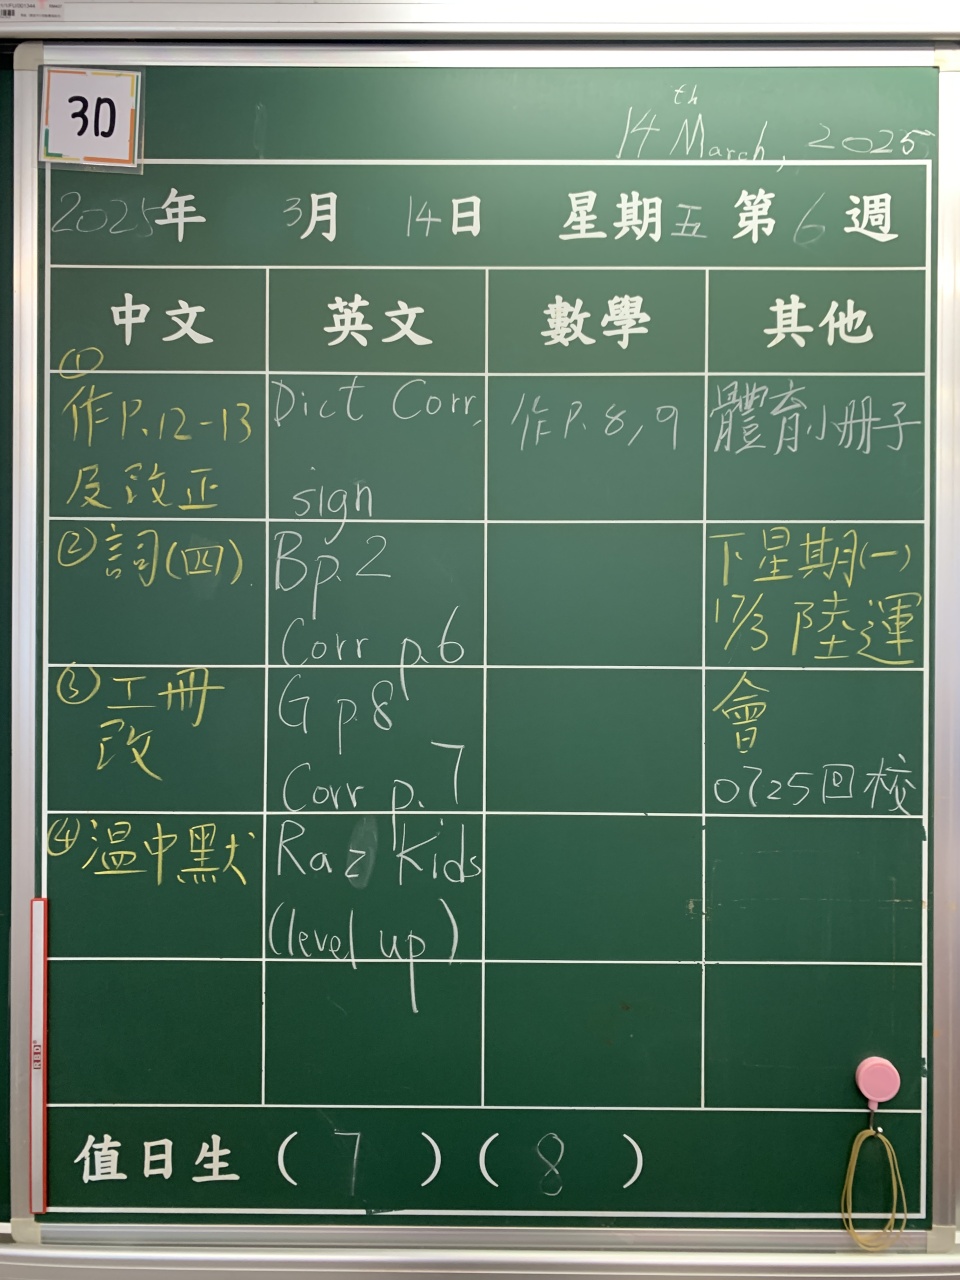 3D
14th March, 2025
2025年 3月 14日 星期五 第6週
中文 英文 數學 其他
①
作P.12-13
及改正
②詞(四)
③工冊
改
④溫中默
Dict Corr,
sign
Bp.2
Corr p.6
G p8
Corr p.7
Raz Kids
(level up)
作P.8,9
體育小冊子
下星期(一)
17/3 陸運
會
0725回校
值日生 ( 7 ) ( 8 )